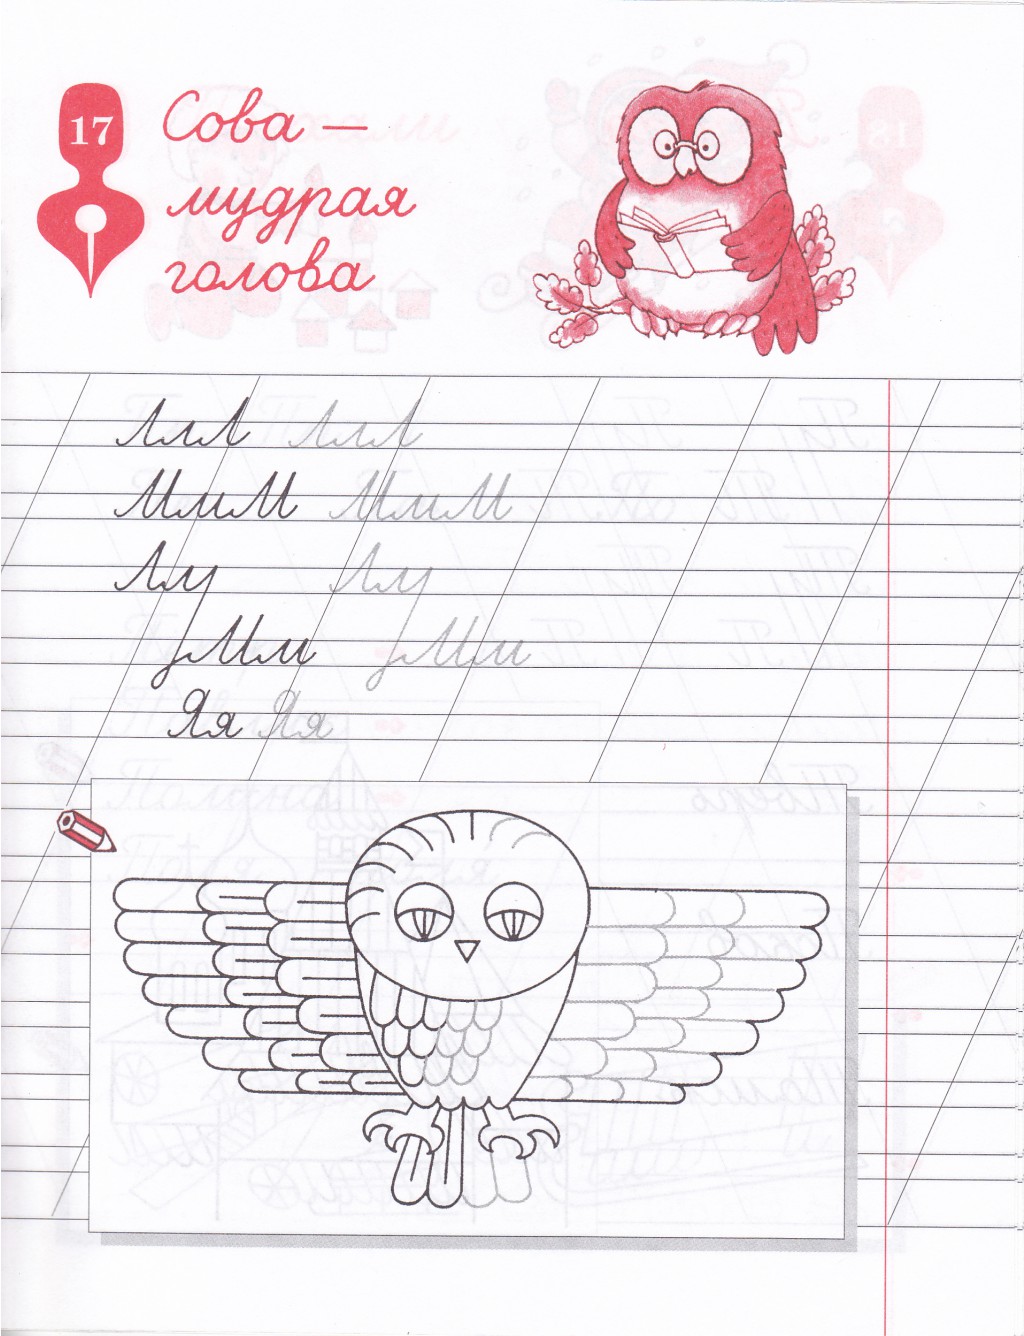 17
Сова –
мудрая
голова
ЛлЛ ЛлЛ
МмМ МмМ
Лу Лу
Мм Мм
Яя Яя